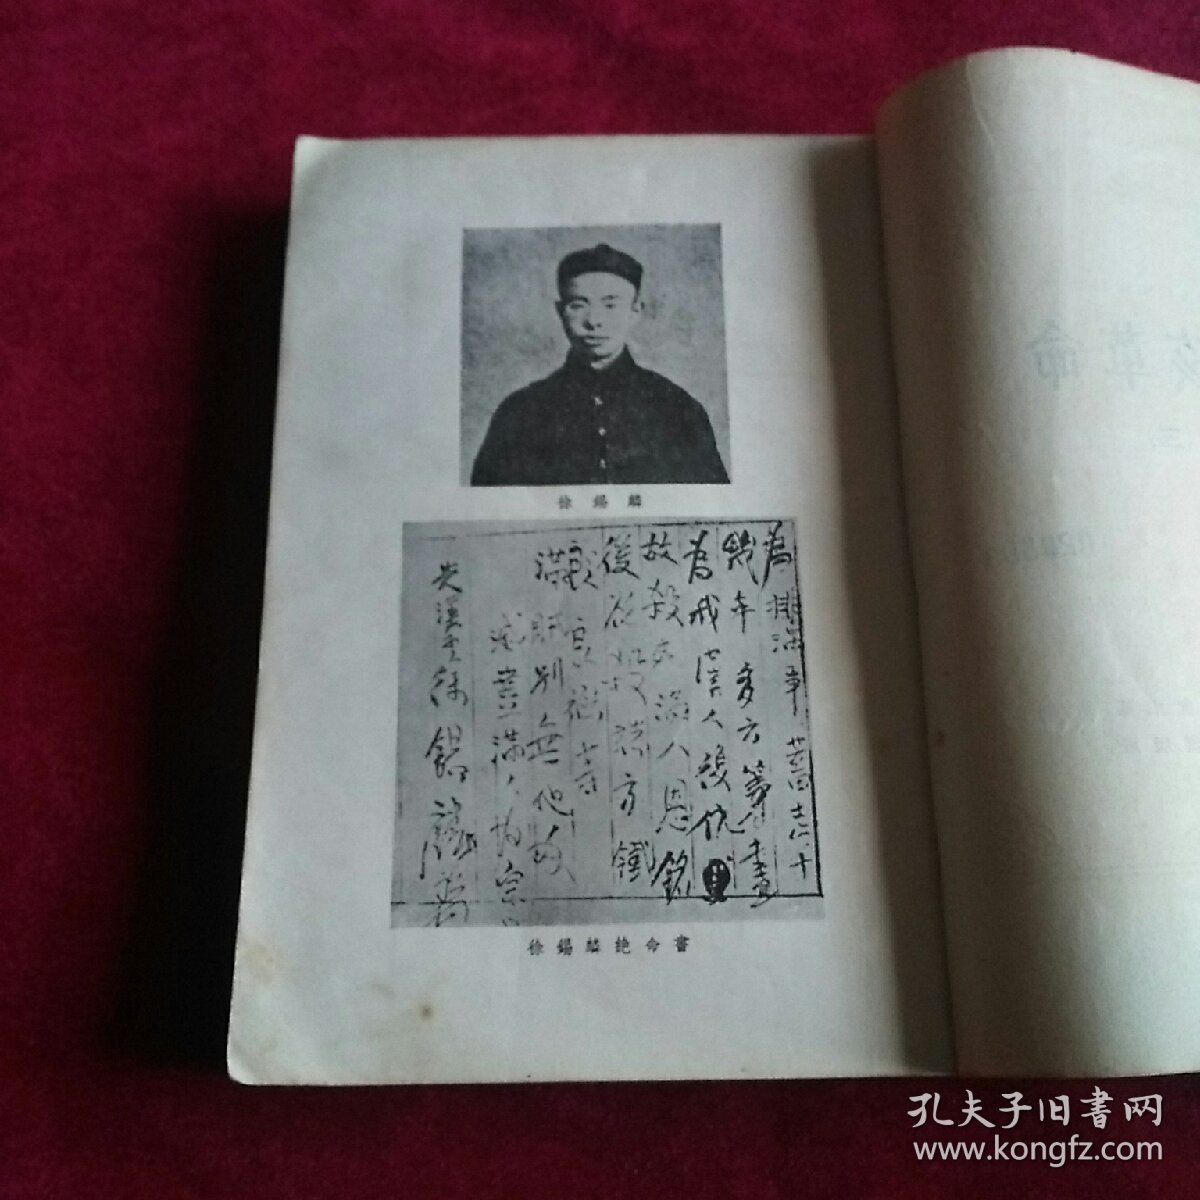 徐錫麟
為排滿事蓄志十
幾年多方籌畫
為我漢人復仇
故殺死滿人恩銘
後欲殺端方鐵
良
滿賊別無他故
滅盡滿人為宗
光漢子徐錫麟
徐錫麟絶命書
孔夫子旧書网
www.kongfz.com